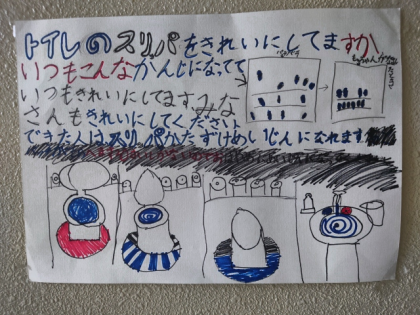 トイレのスリパをきれいにしてますか
いつもこんなかんじになってて
いつもきれいにしてます。みな
さんもきれいにしてください
できた人はスリパかたずけめいじんになれます